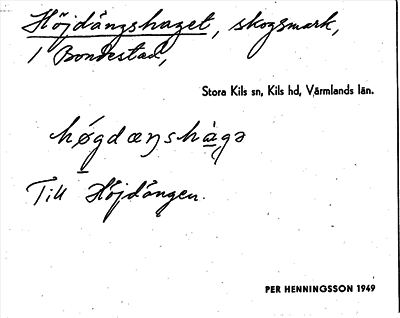 Höjdängshaget, skogsmark,
1 Bondestad,
Stora Kils sn, Kils hd, Värmlands län.
høgdæŋshàgə
Till Höjdängen.
PER HENNINGSSON 1949